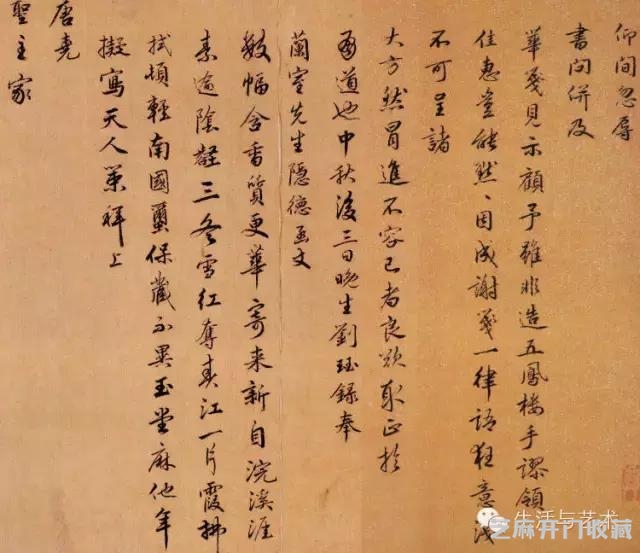 仰間忽辱
書問併及
華箋見示顧予雖非造五鳳樓手謬領
佳惠豈能默、因成謝箋一律語狂意淺
不可呈諸
大方然冒進不容已者良欲取正於
有道也中秋後三日晚生劉珏錄奉
蘭室先生隱德函丈
數幅含香質更華寄來新自浣溪涯
素逾陰壑三冬雪紅奪春江一片霞拂
拭頓輕南國繭保藏不異玉堂麻他年
擬寫天人策拜上
唐堯
聖主家
生活与艺术
芝麻开门收藏